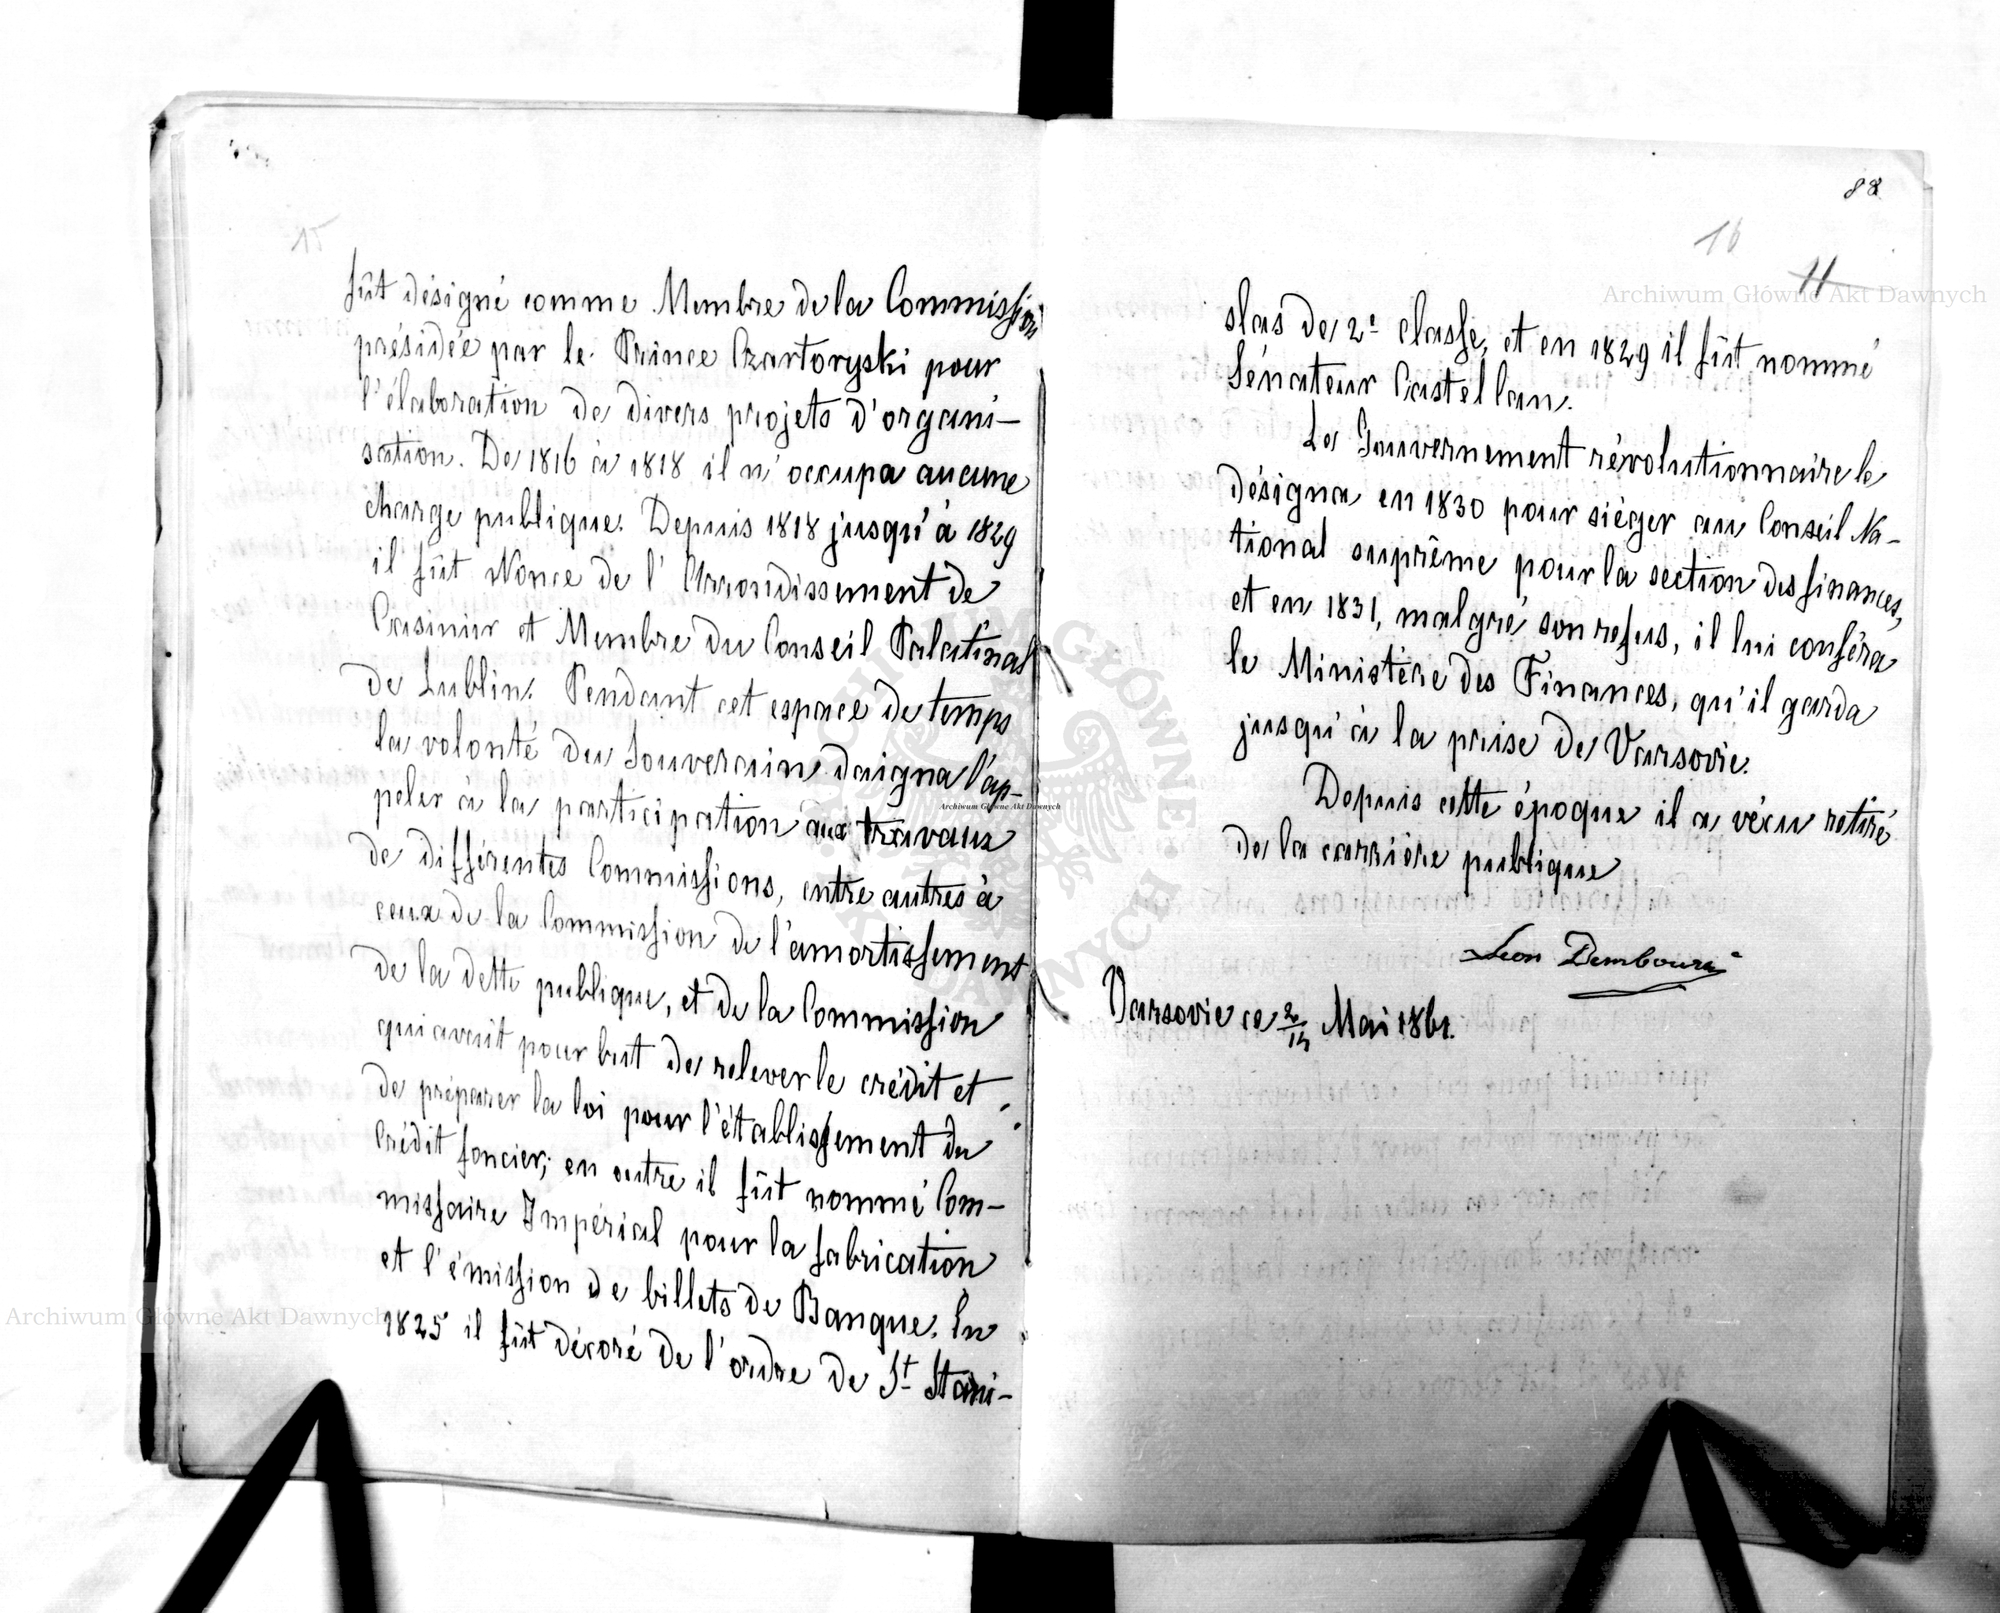 15
fût désigné comme Membre de la Commission
présidée par le Prince Czartoryski pour
l'élaboration de divers projets d'organi-
sation. De 1816 à 1818 il n'occupa aucune
charge publique. Depuis 1818 jusqu'à 1829
il fût Nonce de l'Arrondissement de
Casimir et Membre du Conseil Palatinal
de Lublin. Pendant cet espace de temps
la volonté du Souverain daigna l'ap-
peler à la participation aux travaux
de différentes Commissions, entre autres à
ceux de la Commission de l'amortissement
de la dette publique, et de la Commission
qui avait pour but de relever le crédit et
de préparer la loi pour l'établissement du
Crédit foncier; en outre il fût nommé Com-
missaire Impérial pour la fabrication
et l'émission de billets de Banque. En
1825 il fût décoré de l'ordre de St Stani-
88
16
11
slas de 2e classe, et en 1829 il fût nommé
Sénateur Castellan.
Le Gouvernement révolutionnaire le
désigna en 1830 pour siéger au Conseil Na-
tional suprême pour la section des finances,
et en 1831, malgré son refus, il lui conféra
le Ministère des Finances, qu'il garda
jusqu'à la prise de Varsovie.
Depuis cette époque il a vécu retiré
de la carrière publique
Leon Dembowski
Varsovie ce 2/14 Mai 1861.
Archiwum Główne Akt Dawnych
Archiwum Główne Akt Dawnych
Archiwum Główne Akt Dawnych
ARCHIWUM GŁÓWNE AKT DAWNYCH